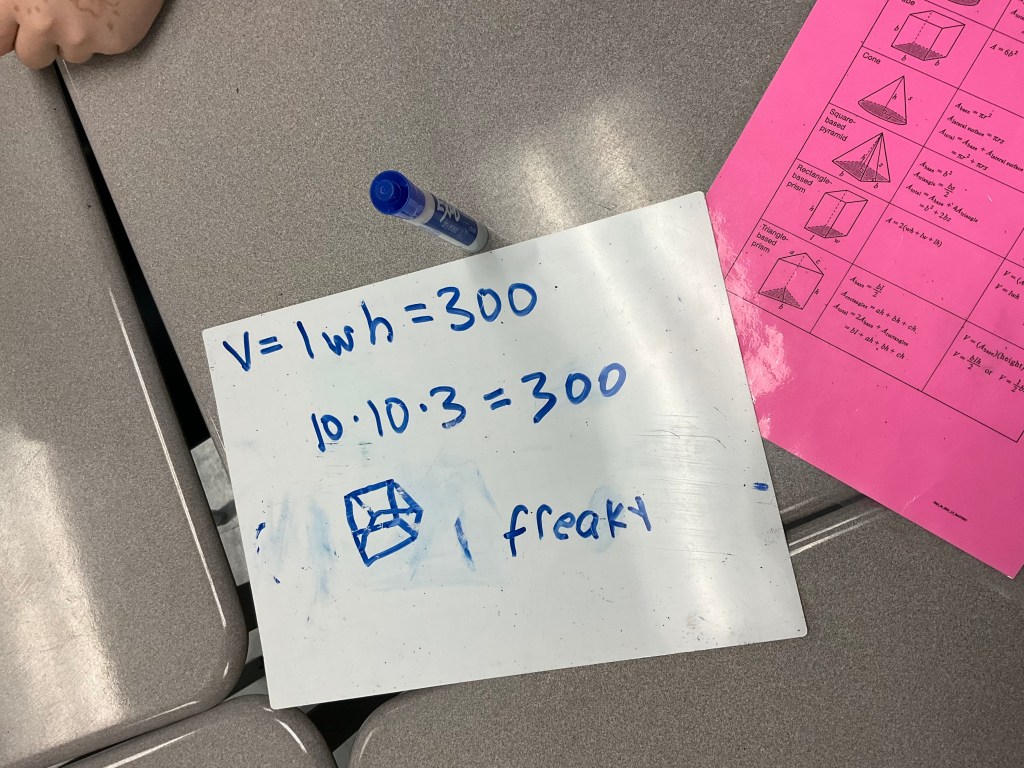 V = lwh = 300
10 · 10 · 3 = 300
freaky
EXPO
Cone
Square-based
pyramid
Rectangle-based
prism
Triangle-based
prism
A = 6b²
A_base = πr²
A_lateral surface = πrs
A_total = A_base + A_lateral surface
= πr² + πrs
A_base = b²
A_triangle = bs/2
A_total = A_base + 4A_triangle
= b² + 2bs
A = 2(wh + lw + lh)
A_base = bl/2
A_rectangles = ah + bh + ch
A_total = 2A_base + A_rectangles
= bl + ah + bh + ch
V = lwh
V = (A_base)(height)
V = blh/2 or